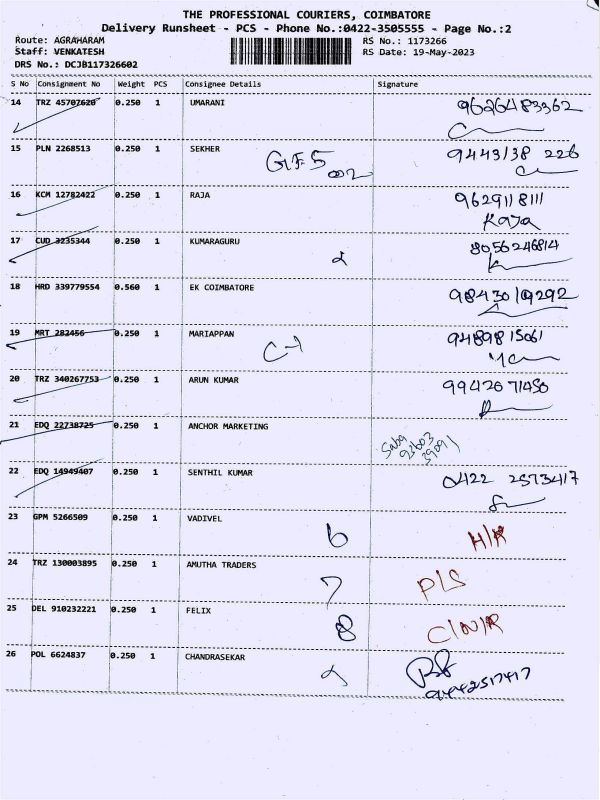 THE PROFESSIONAL COURIERS, COIMBATORE
Delivery Runsheet - PCS - Phone No.:0422-3505555 - Page No.:2
Route: AGRAHARAM RS No.: 1173266
Staff: VENKATESH RS Date: 19-May-2023
DRS No.: DCJB117326602
S No Consignment No Weight PCS Consignee Details Signature
14 TRZ 45707620 0.250 1 UMARANI 9626483362
15 PLN 2268513 0.250 1 SEKHER GF5 002 9443138 226
16 KCM 12782422 0.250 1 RAJA 9629118111
Raja
17 CUD 3235344 0.250 1 KUMARAGURU 2 8056246814
18 HRD 339779554 0.560 1 EK COIMBATORE 9843019292
19 MRT 282456 0.250 1 MARIAPPAN C-1 9489815061
20 TRZ 340267753 0.250 1 ARUN KUMAR 9942071450
21 EDQ 22738725 0.250 1 ANCHOR MARKETING
22 EDQ 14949407 0.250 1 SENTHIL KUMAR 0422 2573417
23 GPM 5266509 0.250 1 VADIVEL 6 H/R
24 TRZ 130003895 0.250 1 AMUTHA TRADERS 7 P/S
25 DEL 910232221 0.250 1 FELIX 8 C/N/R
26 POL 6624837 0.250 1 CHANDRASEKAR 2
9442517417